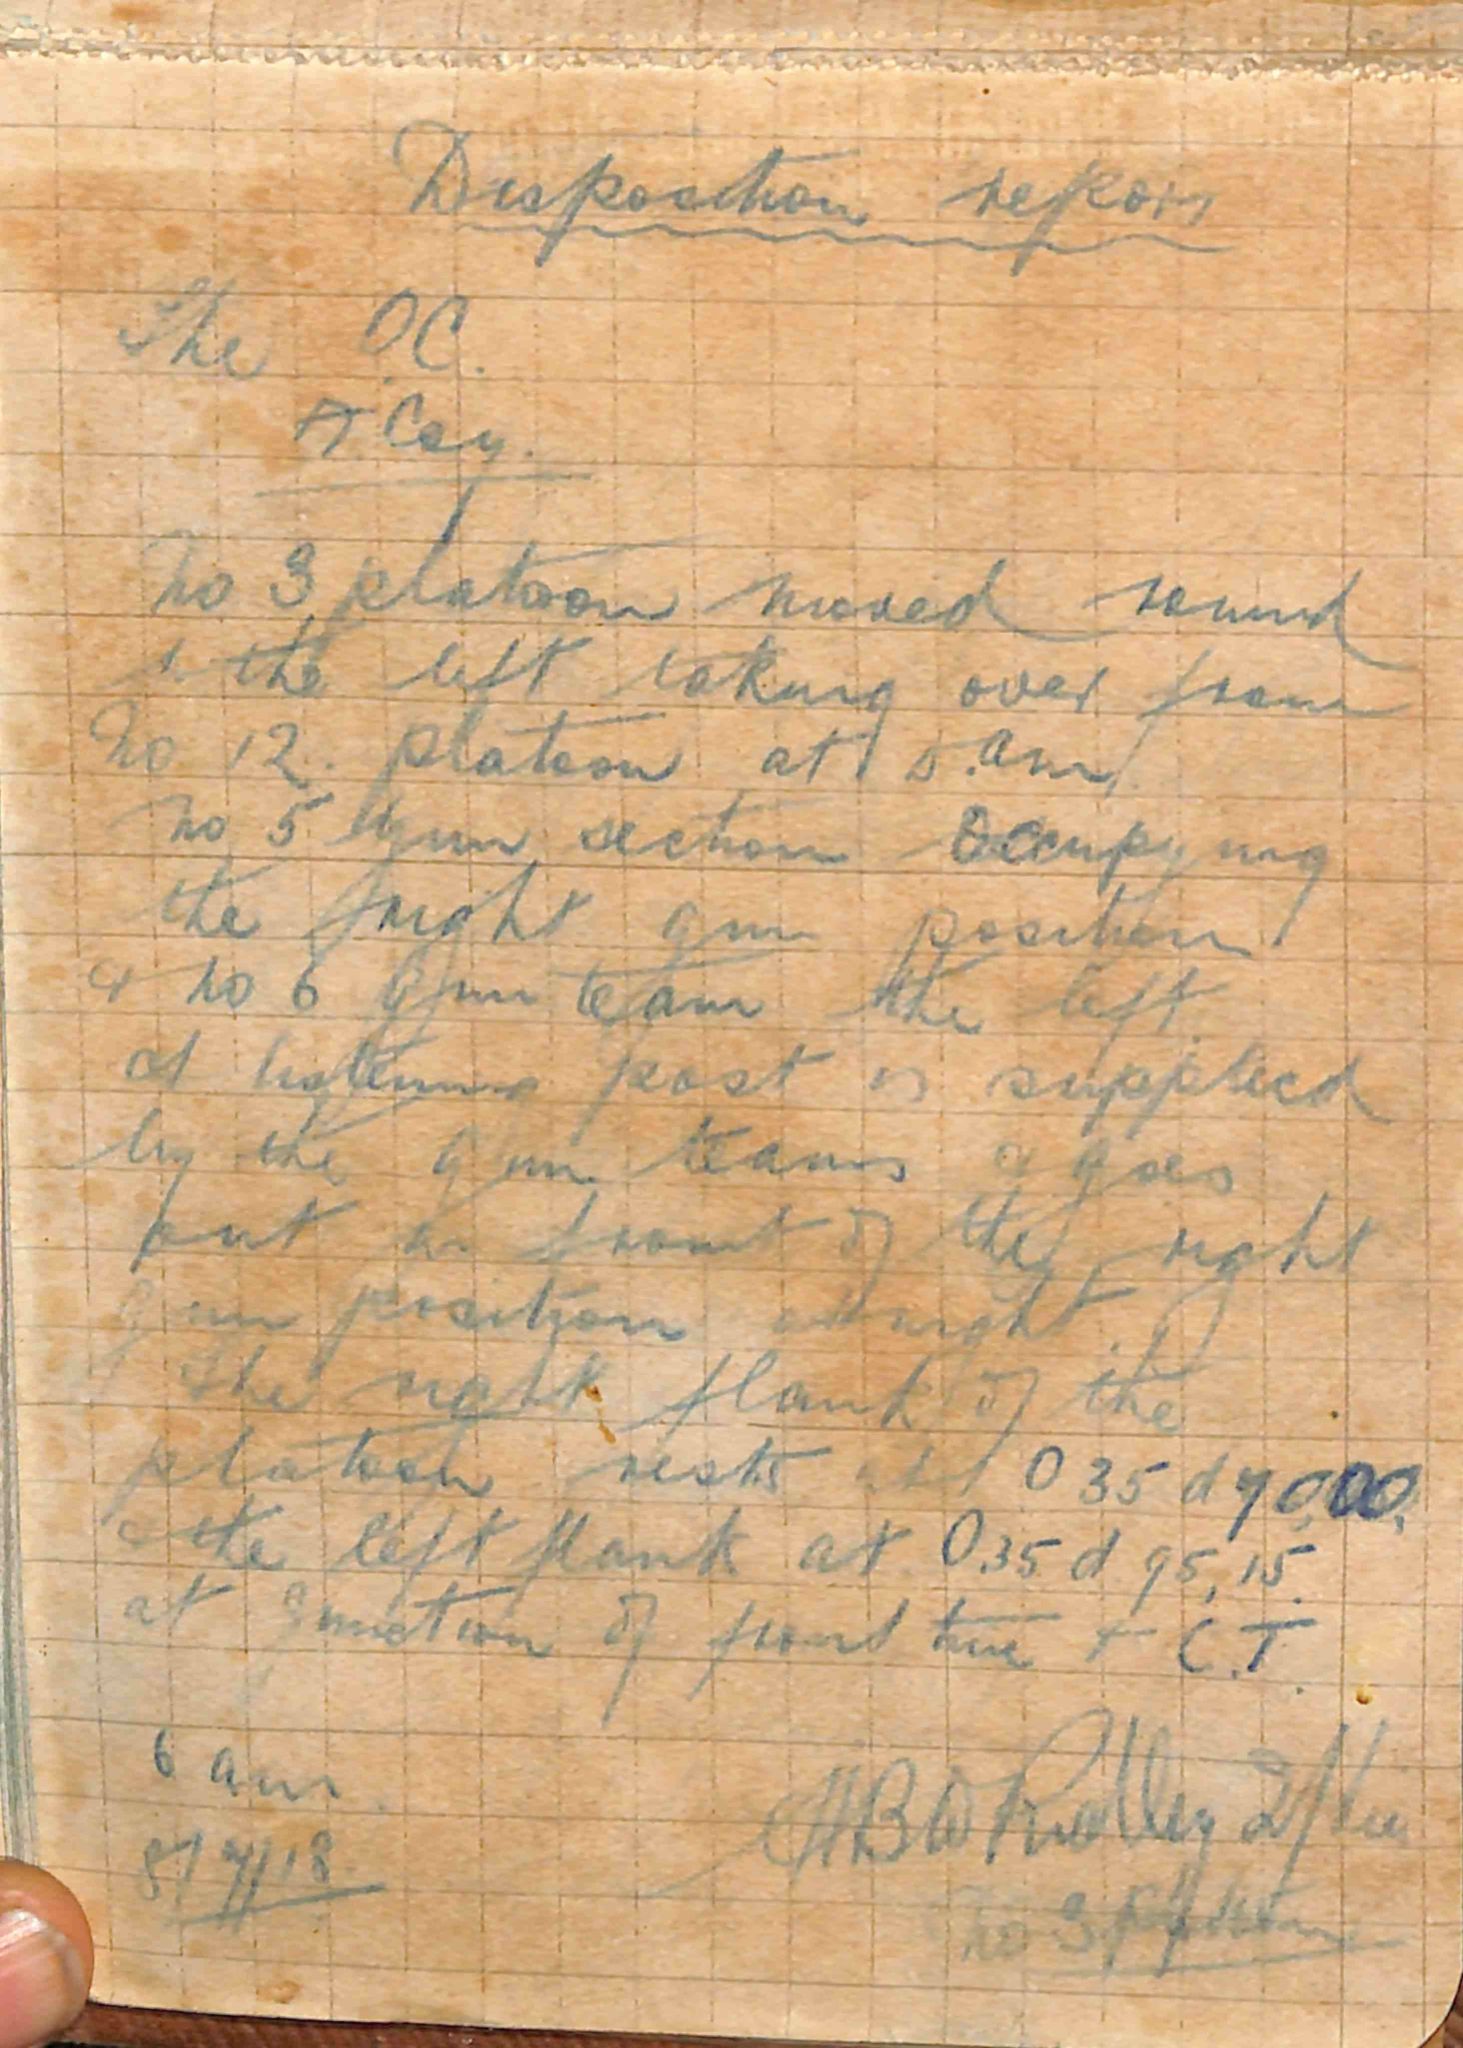 Disposition report
The O.C.
A. Coy.
No 3 platoon moved round
to the left taking over from
No 12. platoon at 5.am.
No 5 gun section occupying
the right gun position
& No 6 gun team the left.
A listening post is supplied
by the gun teams & goes
out in front of the right
gun position at night.
The right flank of the
platoon rests at O 35 d 70,00.
& the left flank at O.35 d 95,15.
at junction of front line + C.T.
6 am.
5/7/18.
H B W Ridley 2/Lieu
No 3 platoon